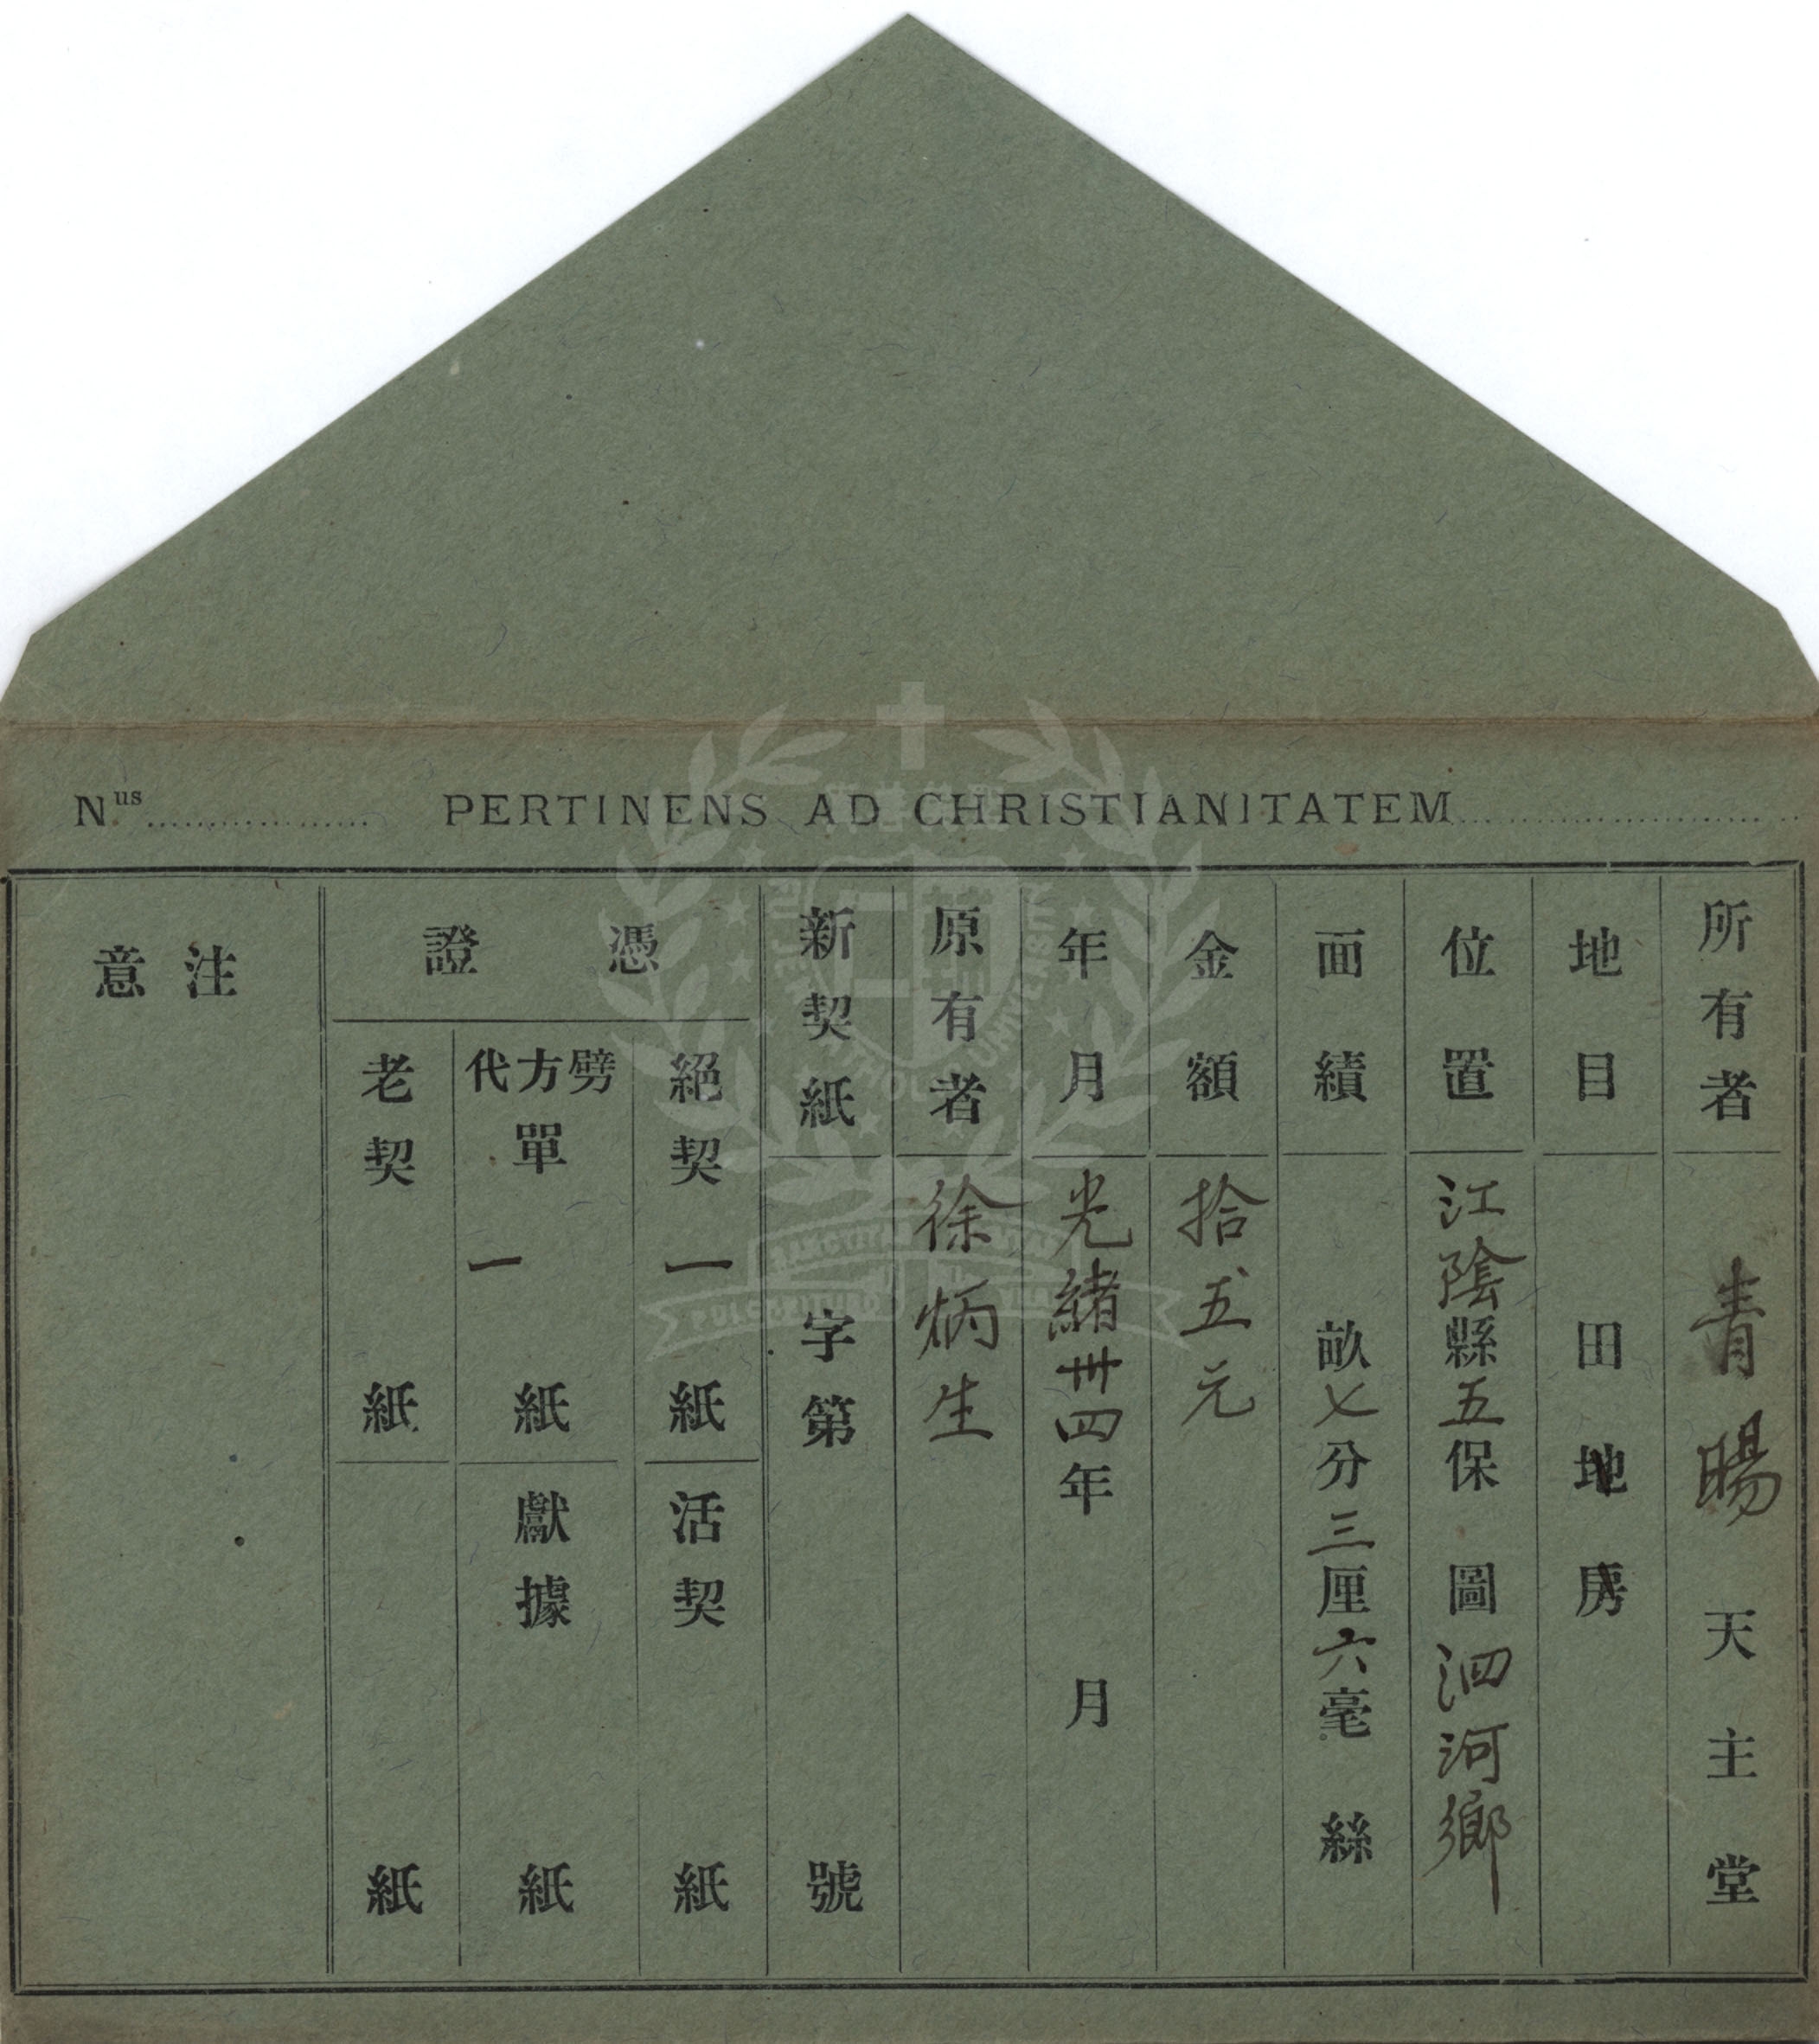 Nus PERTINENS AD CHRISTIANITATEM
所有者 青暘天主堂
地目 田地房
位置 江陰縣五保圖泗河鄉
面績 畝七分三厘六毫絲
金額 拾五元
年月 光緒卅四年月
原有者 徐炳生
新契紙 字第號
憑證
絕契 一紙
活契 紙
劈方代單 一紙
獻據 紙
老契 紙
紙
注意